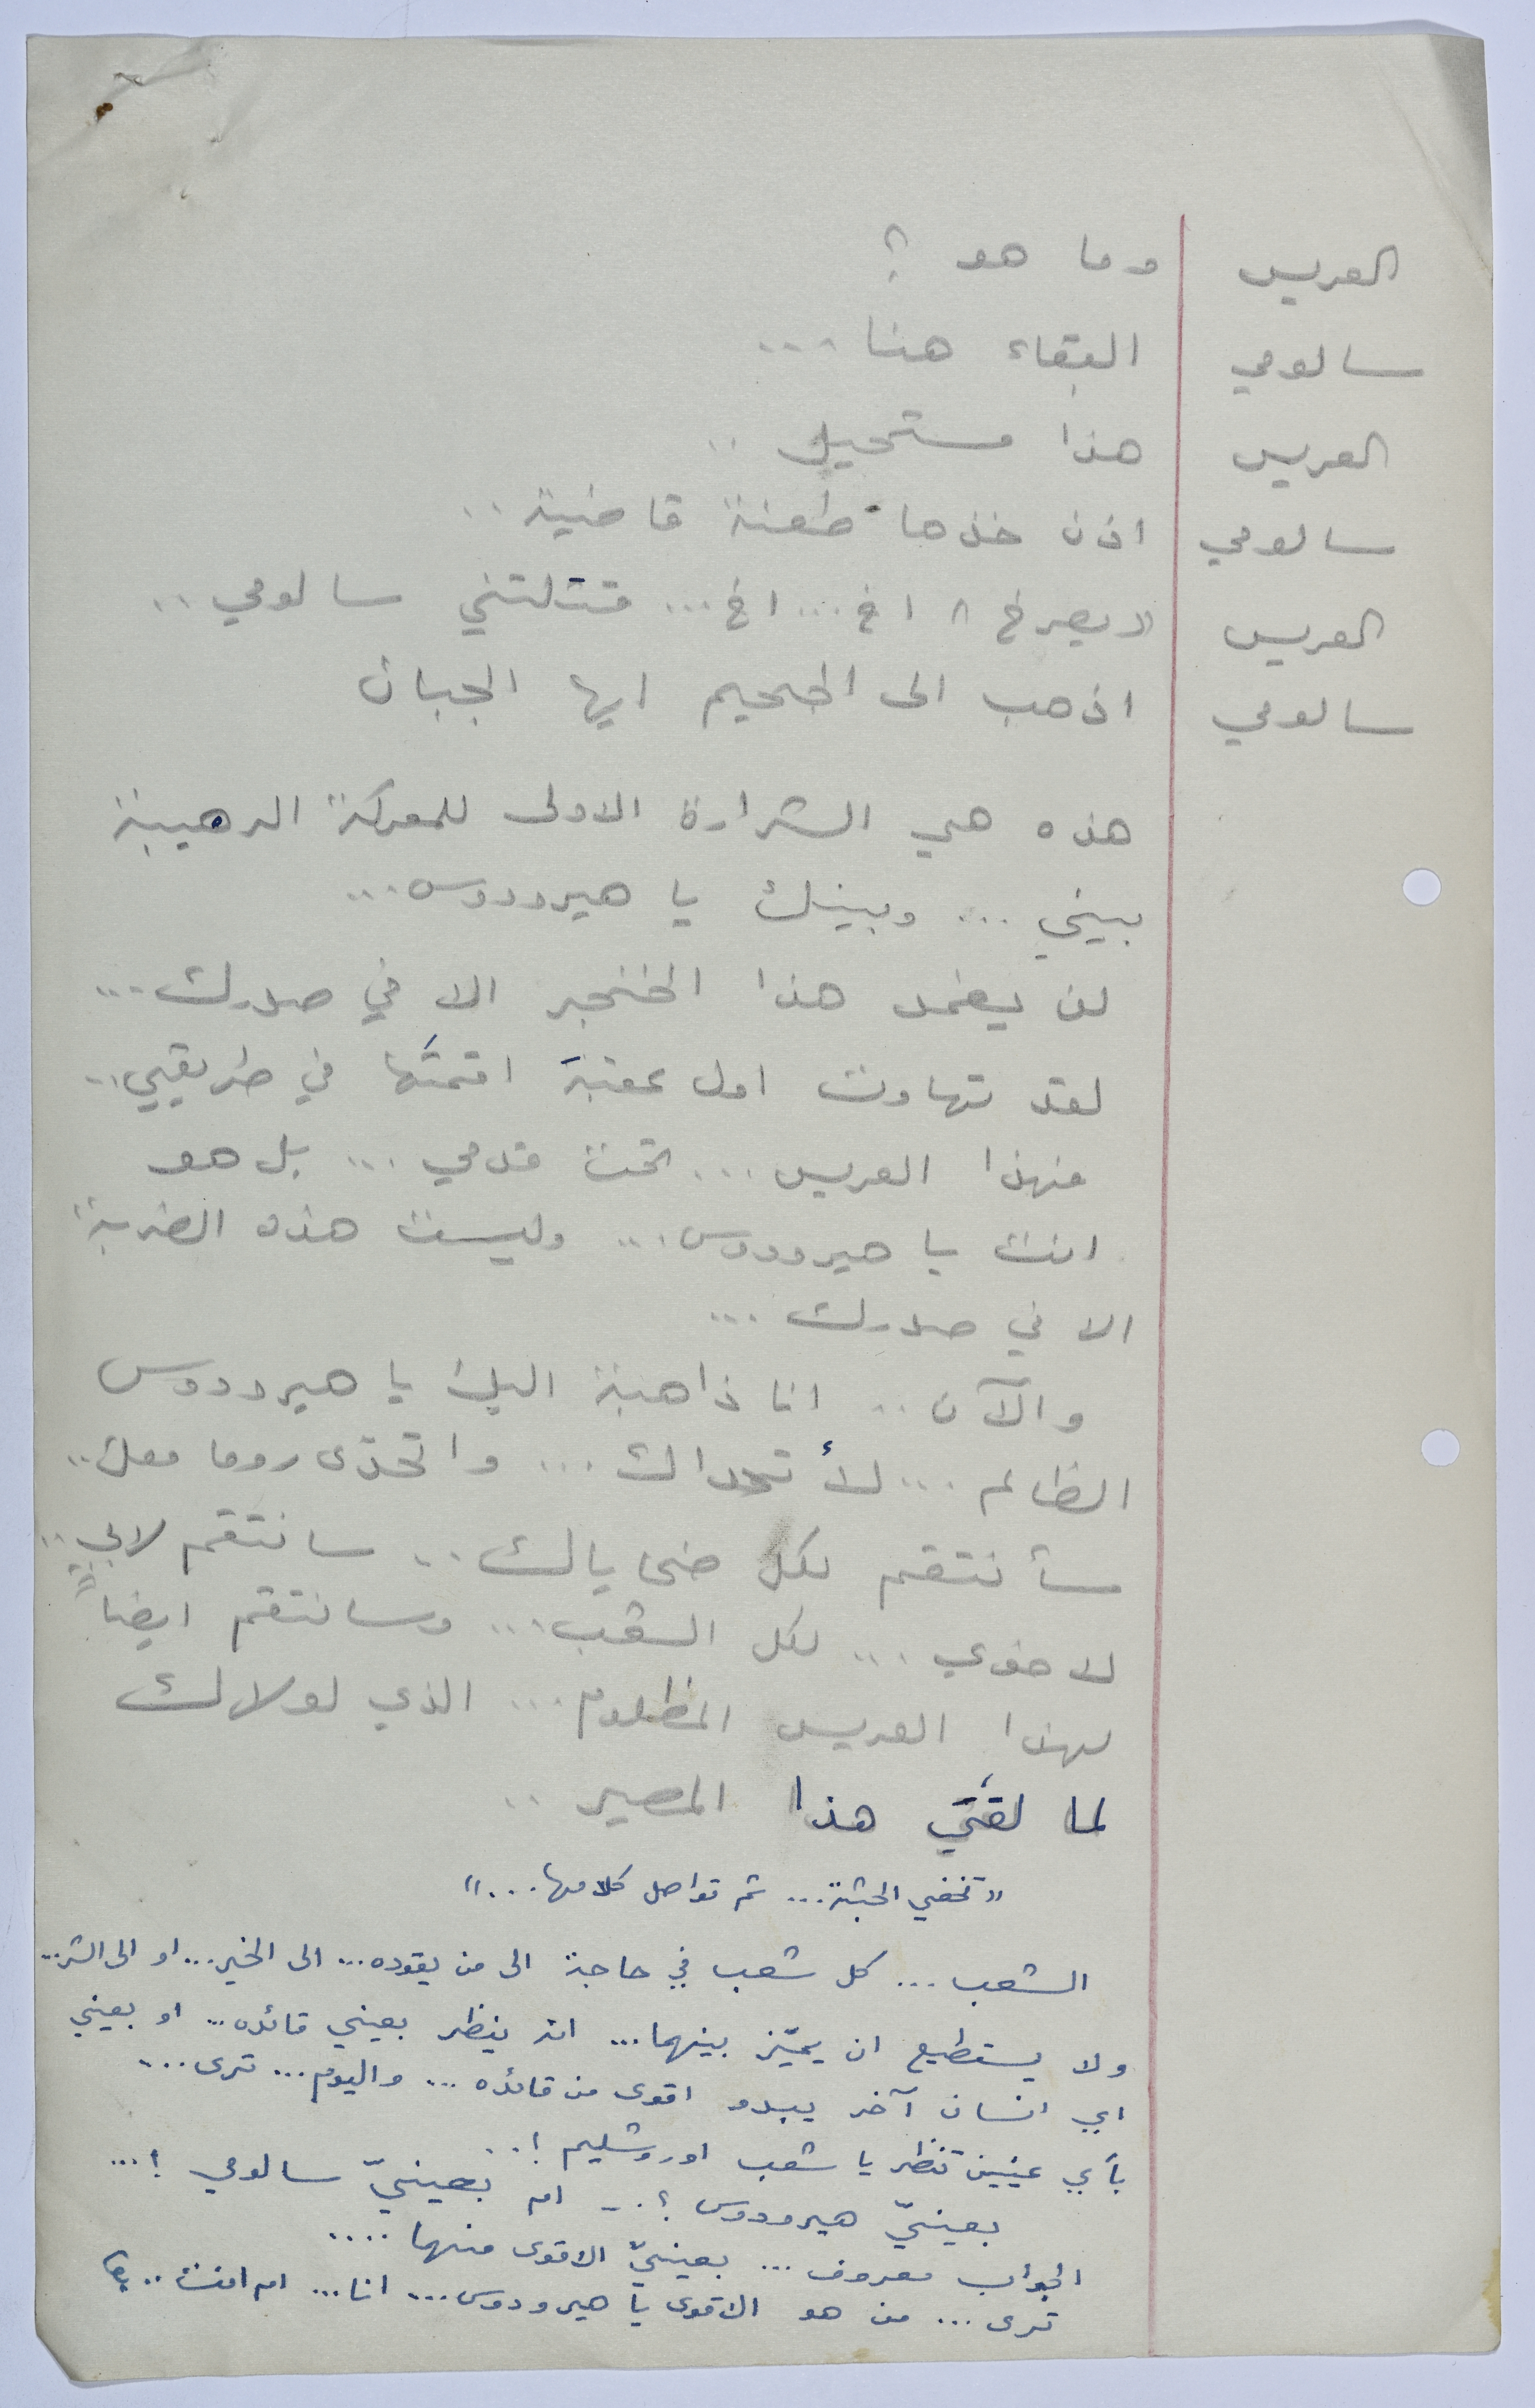 العريس وما هو ؟
سالومي البقاء هنا ...
العريس هذا مستحيل ..
سالومي اذن خذها طعنة قاضية ..
العريس «يصرخ» اخ ... اخ ... قتلتني سالومي ..
سالومي اذهب الى الجحيم ايها الجبان
هذه هي الشرارة الاولى للمعركة الرهيبة
بيني ... وبينك يا هيرودوس ...
لن يغمد هذا الخنجر الا في صدرك ...
لقد تهاوت اول عقبة اقمتَها في طريقي ..
فهذا العريس ... تحت قدمي ... بل هو
انت يا هيرودوس ... وليست هذه الضربة
الا في صدرك ...
والآن .. انا ذاهبة اليك يا هيرودوس
الظالم ... لأتحداك ... واتحدّى روما معك ..
سأنتقم لكل ضحاياك .. سانتقم لابي ..
لاخوي ... لكل الشعب ... وسانتقم ايضاً
لهذا العريس المظلوم ... الذي لولاك
لما لقيَ هذا المصير ..
«تخفي الجثة ... ثم تواصل كلامها ...»
الشعب ... كل شعب في حاجة الى من يقوده ... الى الخير ... او الى الشر ...
ولا يستطيع ان يميّز بينهما ... انه ينظر بعيني قائده ... او بعيني
اي انسان آخر يبدو اقوى من قائده ... واليوم ... ترى ...
بأي عينين تنظر يا شعب اورشليم !..
بعينيّ هيرودوس ؟ .. ام بعينيّ سالومي ! ...
الجواب معروف ... بعينيّ الاقوى منهما ....
ترى ... من هو الاقوى يا هيرودوس ... انا ... ام انت ..